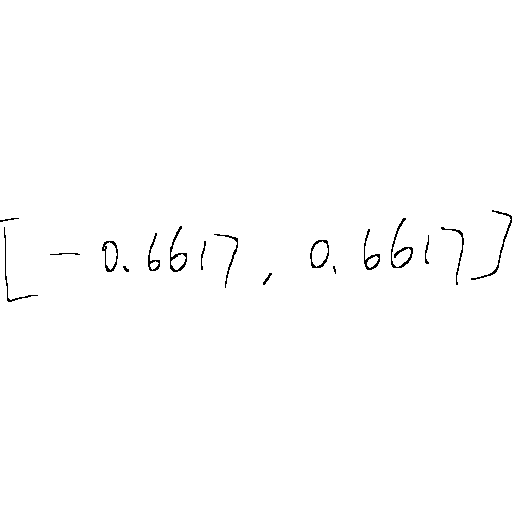 [-0.6617, 0.6617]